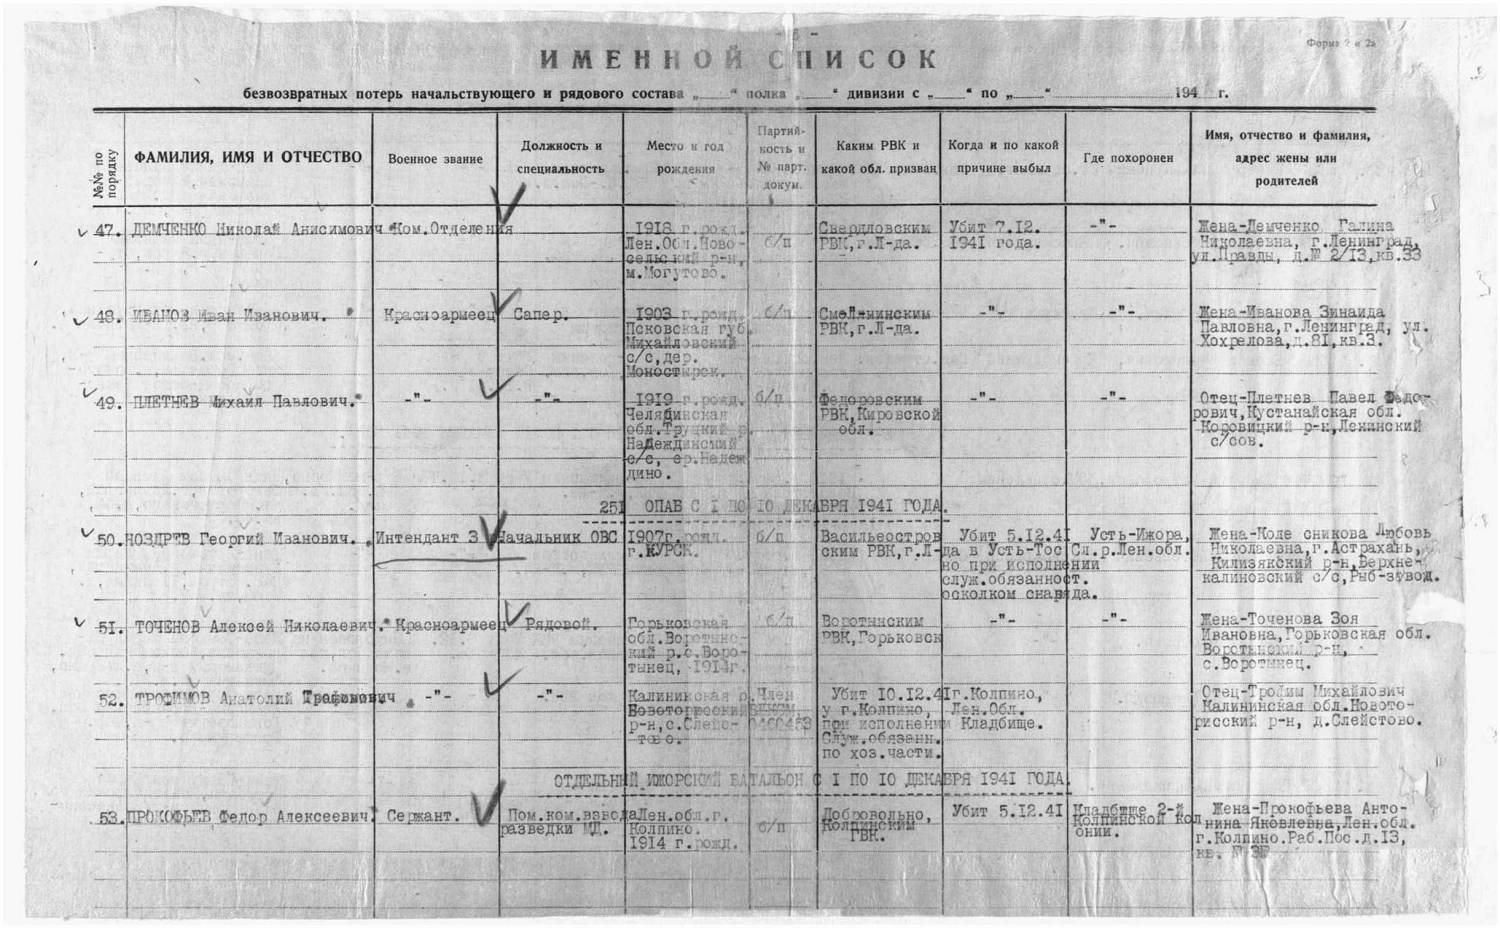 - 8 -
Форма 2 и 2а
ИМЕННОЙ СПИСОК
безвозвратных потерь начальствующего и рядового состава „ “ полка „ “ дивизии с „ “ по „ “ 194 г.
№№ по порядку
ФАМИЛИЯ, ИМЯ И ОТЧЕСТВО
Военное звание
Должность и
специальность
Место и год
рождения
Партий-
ность и
№ парт.
докум.
Каким РВК и
какой обл. призван
Когда и по какой
причине выбыл
Где похоронен
Имя, отчество и фамилия,
адрес жены или
родителей
47. ДЕМЧЕНКО Николай Анисимович
Ком.Отделения
1918 г.рожд.
Лен.Обл.Ново-
сельский р-н,
м.Могутово.
б/п
Свердловским
РВК,г.Л-да.
Убит 7.12.
1941 года.
-"-
Жена-Демченко Галина
Николаевна, г.Ленинград,
ул.Правды, д.№ 2/13,кв.33
48. ИВАНОВ Иван Иванович.
Красноармеец
Сапер.
1903 г.рожд.
Псковская губ.
Михайловский
с/с,дер.
Моностырек.
б/п
Смольнинским
РВК,г.Л-да.
-"-
-"-
Жена-Иванова Зинаида
Павловна,г.Ленинград, ул.
Хохрелова,д.81,кв.3.
49. ПЛЕТНЕВ Михаил Павлович.
-"-
-"-
1919 г.рожд.
Челябинская
обл.Труцкий р.
Надеждинский
с/с, ер.Надеж
дино.
б/п
Федоровским
РВК,Кировской
обл.
-"-
-"-
Отец-Плетнев Павел Федо-
рович,Кустанайская обл.
Коровицкий р-н,Ленинский
с/сов.
251 ОПАБ С I ПО 10 ДЕКАБРЯ 1941 ГОДА.
50. НОЗДРЕВ Георгий Иванович.
Интендант 3
Начальник ОВС
1907г.рожд.
г.КУРСК.
б/п
Васильеостров
ским РВК,г.Л-да
Убит 5.12.41
в Усть-Тос
но при исполнении
служ.обязанност.
осколком снаряда.
Усть-Ижора,
Сл.р.Лен.обл.
Жена-Коле сникова Любовь
Николаевна,г.Астрахань,
Килизякский р-н,Верхне-
калиновский с/с,Рыб-завод.
51. ТОЧЕНОВ Алексей Николаевич.
Красноармеец
Рядовой.
Горьковская
обл.Воротынс-
кий р.с.Воро-
тынец, 1914г.
б/п
Воротынским
РВК,Горьковск
-"-
-"-
Жена-Точенова Зоя
Ивановна,Горьковская обл.
Воротынский р-н,
с.Воротынец.
52. ТРОФИМОВ Анатолий Трофимович
-"-
-"-
Калининская о.
Бовоторжский
р-н,с.Слейс-
тово.
Член
ВЛКСМ,
0460453
Убит 10.12.41г.
у г.Колпино,
при исполнении
Служ.обязанн.
по хоз.части.
Колпино,
Лен.Обл.
Кладбище.
Отец-Трофим Михайлович
Калининская обл.Новото-
рисский р-н, д.Слейстово.
ОТДЕЛЬНЫЙ ИЖОРСКИЙ БАТАЛЬОН С I ПО 10 ДЕКАБРЯ 1941 ГОДА.
53. ПРОКОФЬЕВ Федор Алексеевич.
Сержант.
Пом.ком.взвода
разведки МД.
Лен.обл.г.
Колпино.
1914 г.рожд.
б/п
Добровольно,
Колпинским
ГВК.
Убит 5.12.41
Кладбище 2-й
Колпинской кол
онии.
Жена-Прокофьева Анто-
нина Яковлевна,Лен.обл.
г.Колпино.Раб.Пос.д.13,
кв.